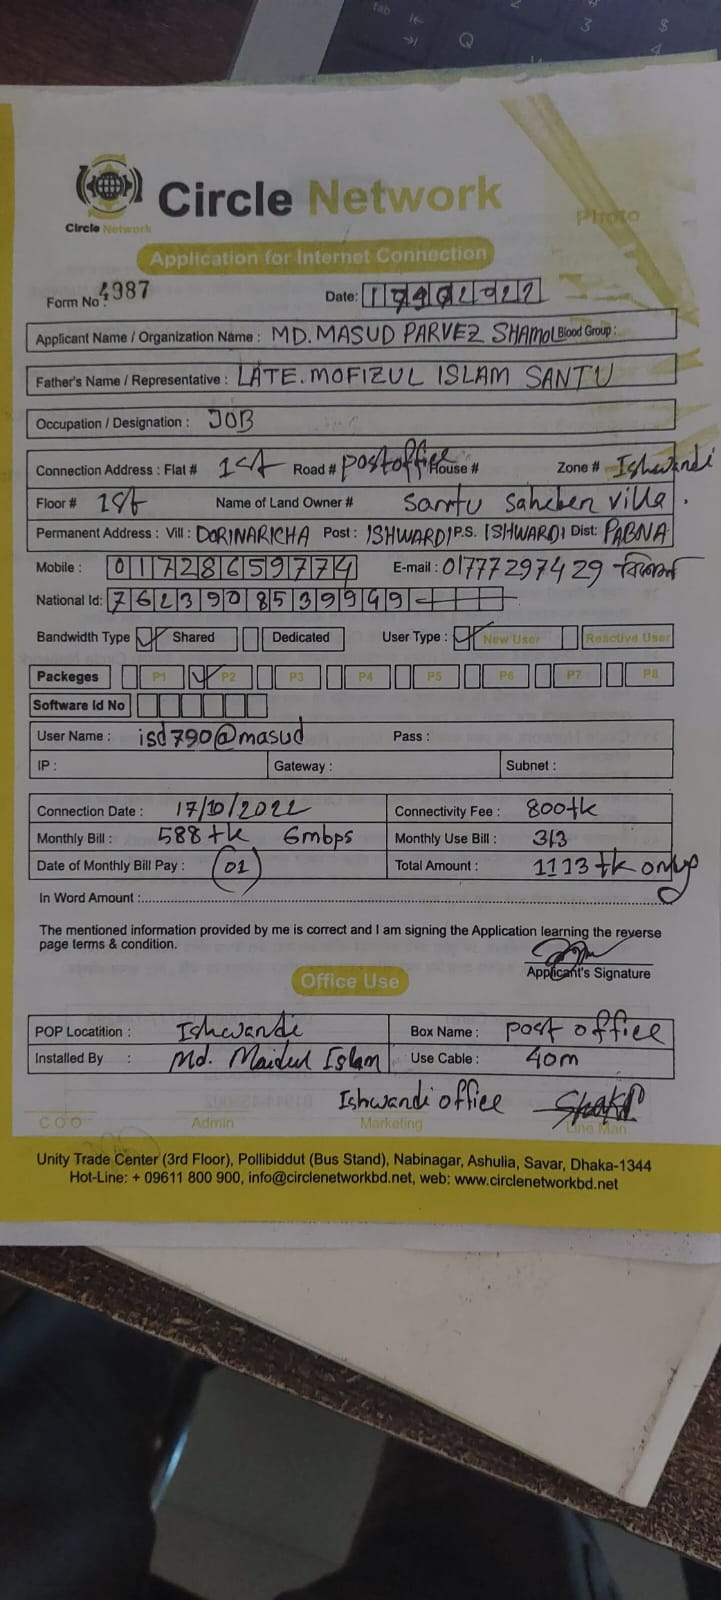 Circle Network
Circle Network
Photo
Application for Internet Connection
Form No : 4987
Date:
Applicant Name / Organization Name : MD. MASUD PARVEZ SHAMOL Blood Group :
Father's Name / Representative : LATE. MOFIZUL ISLAM SANTU
Occupation / Designation : JOB
Connection Address : Flat # 1st Road # post office House # Zone # Ishwardi
Floor # 1st Name of Land Owner # Santu saheber villa .
Permanent Address : Vill : DORINARICHA Post : ISHWARDI P.S. ISHWARDI Dist: PABNA
Mobile : 01728659774 E-mail : 01777297429
National Id: 7623908539949
Bandwidth Type Shared Dedicated User Type : New User Reactive User
Packeges P1 P2 P3 P4 P5 P6 P7 P8
Software Id No
User Name : isd790@masud Pass :
IP : Gateway : Subnet :
Connection Date : 17/10/2022 Connectivity Fee : 800tk
Monthly Bill : 588tk 6mbps Monthly Use Bill : 313
Date of Monthly Bill Pay : 01 Total Amount : 1113 tk
In Word Amount :
The mentioned information provided by me is correct and I am signing the Application learning the reverse
page terms & condition.
Applicant's Signature
Office Use
POP Locatition : Ishwardi Box Name : post office
Installed By : Md. Maidul Islam Use Cable : 40m
Ishwardi office
C O O Admin Marketing Line Man
Unity Trade Center (3rd Floor), Pollibiddut (Bus Stand), Nabinagar, Ashulia, Savar, Dhaka-1344
Hot-Line: + 09611 800 900, info@circlenetworkbd.net, web: www.circlenetworkbd.net